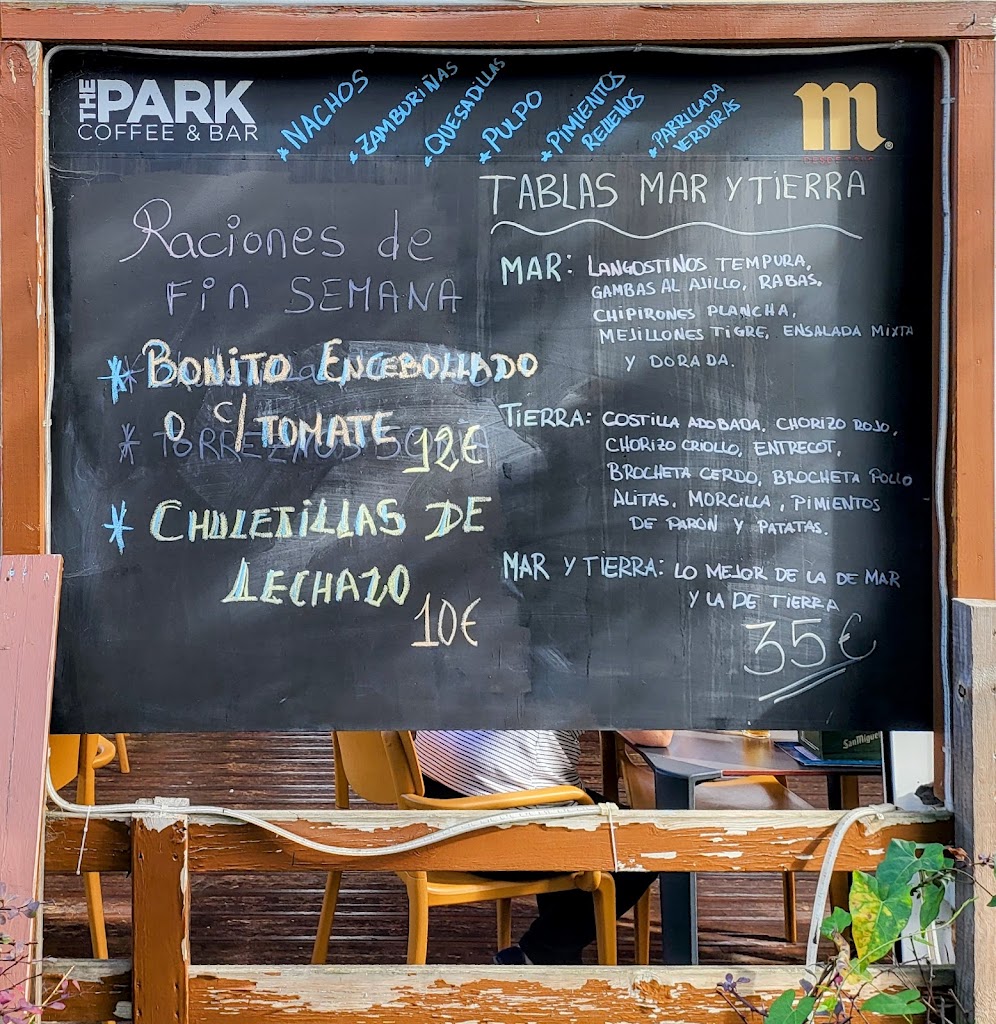 THE PARK
COFFEE & BAR
* NACHOS
* ZAMBURIÑAS
* QUESADILLAS
* PULPO
* PIMIENTOS
RELLENOS
* PARRILLADA
VERDURAS
m®
Raciones de
Fin SEMANA
* BONITO ENCEBOLLADO
O C/ TOMATE 12€
* CHULETILLAS DE
LECHAZO
10€
TABLAS MAR Y TIERRA
MAR: LANGOSTINOS TEMPURA,
GAMBAS AL AJILLO, RABAS,
CHIPIRONES PLANCHA,
MEJILLONES TIGRE, ENSALADA MIXTA
Y DORADA.
TIERRA: COSTILLA ADOBADA, CHORIZO ROJO,
CHORIZO CRIOLLO, ENTRECOT,
BROCHETA CERDO, BROCHETA POLLO
ALITAS, MORCILLA, PIMIENTOS
DE PARON Y PATATAS.
MAR Y TIERRA: LO MEJOR DE LA DE MAR
Y LA DE TIERRA
35€
San Miguel